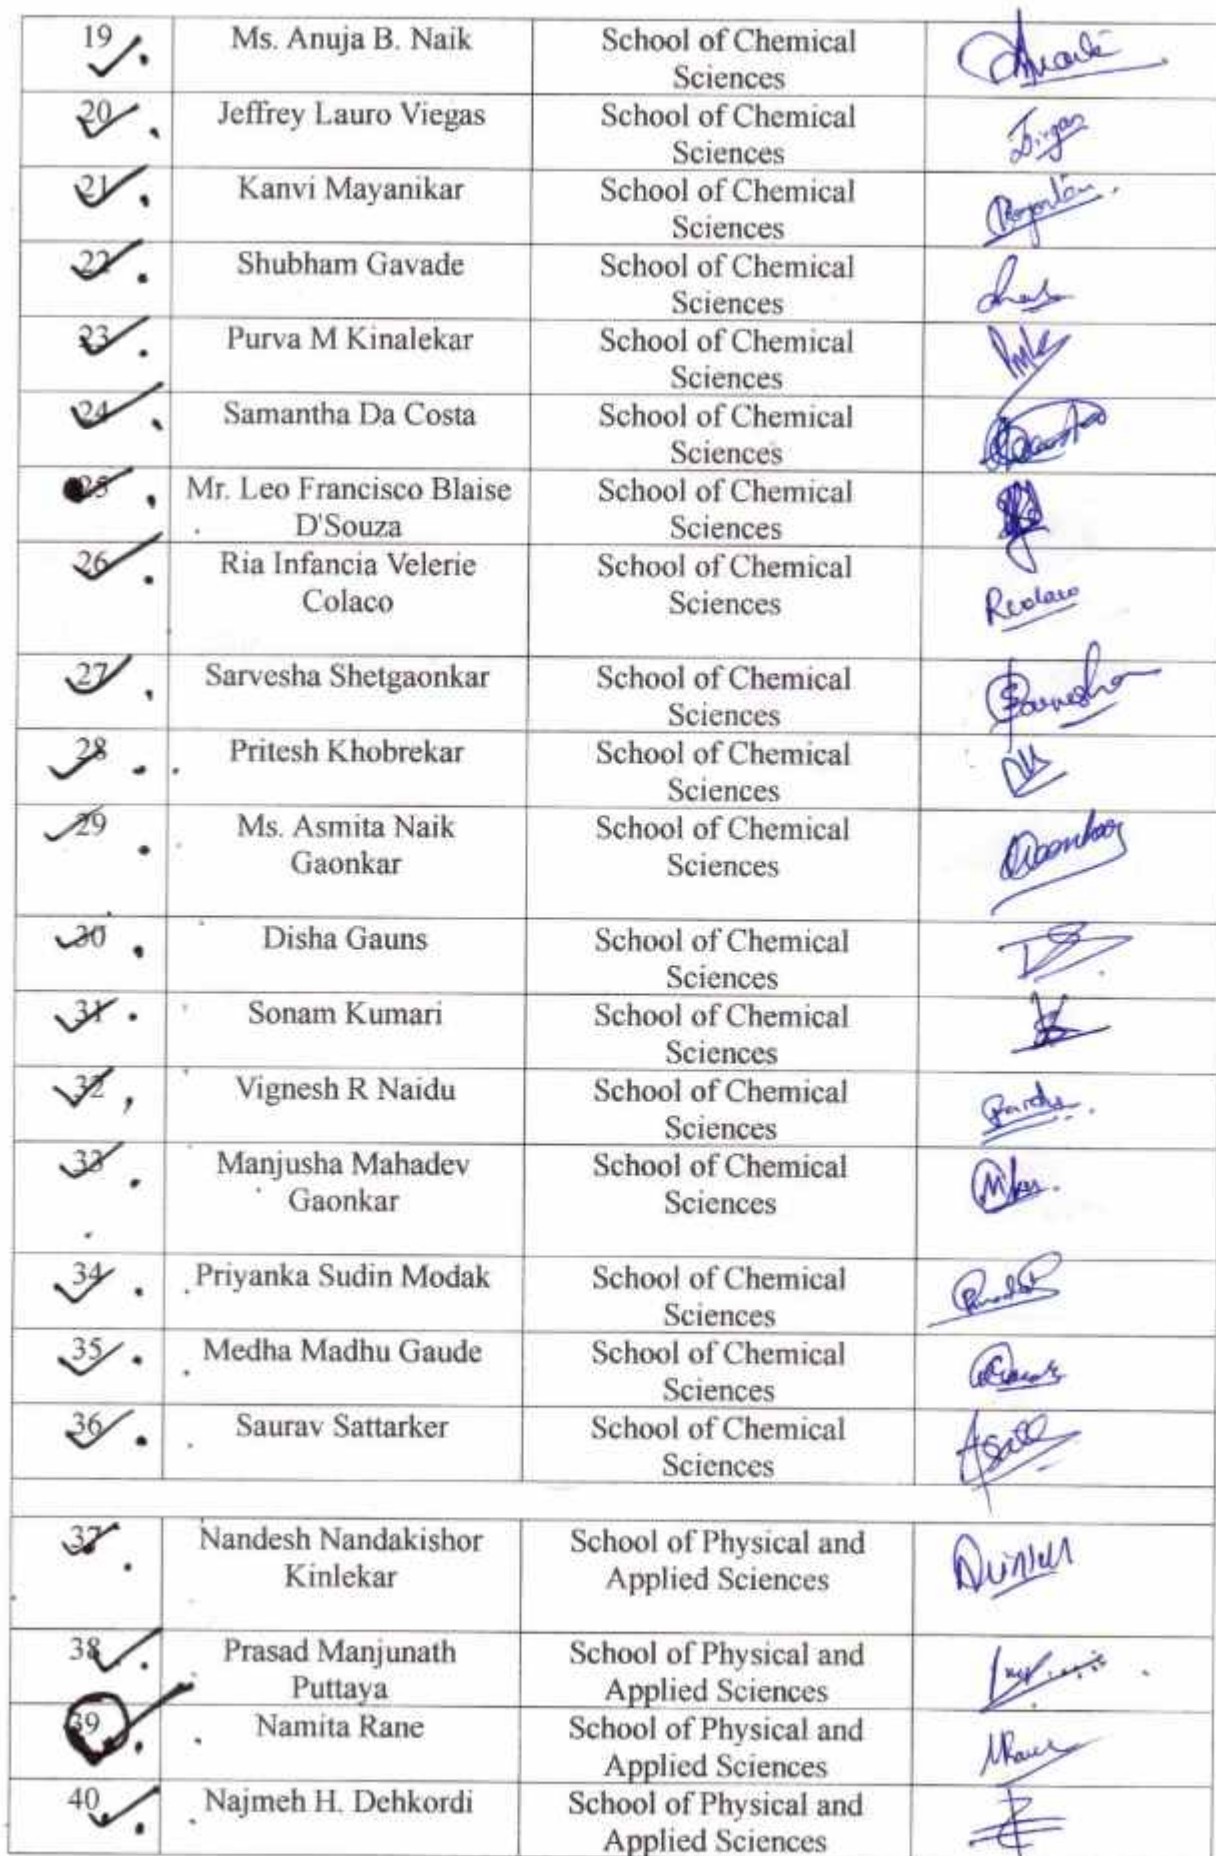 19 Ms. Anuja B. Naik School of Chemical
Sciences
20 Jeffrey Lauro Viegas School of Chemical
Sciences
21 Kanvi Mayanikar School of Chemical
Sciences
22 Shubham Gavade School of Chemical
Sciences
23 Purva M Kinalekar School of Chemical
Sciences
24 Samantha Da Costa School of Chemical
Sciences
25 Mr. Leo Francisco Blaise School of Chemical
D'Souza Sciences
26 Ria Infancia Velerie School of Chemical
Colaco Sciences
27 Sarvesha Shetgaonkar School of Chemical
Sciences
28 Pritesh Khobrekar School of Chemical
Sciences
29 Ms. Asmita Naik School of Chemical
Gaonkar Sciences
30 Disha Gauns School of Chemical
Sciences
31 Sonam Kumari School of Chemical
Sciences
32 Vignesh R Naidu School of Chemical
Sciences
33 Manjusha Mahadev School of Chemical
Gaonkar Sciences
34 Priyanka Sudin Modak School of Chemical
Sciences
35 Medha Madhu Gaude School of Chemical
Sciences
36 Saurav Sattarker School of Chemical
Sciences
37 Nandesh Nandakishor School of Physical and
Kinlekar Applied Sciences
38 Prasad Manjunath School of Physical and
Puttaya Applied Sciences
39 Namita Rane School of Physical and
Applied Sciences
40 Najmeh H. Dehkordi School of Physical and
Applied Sciences